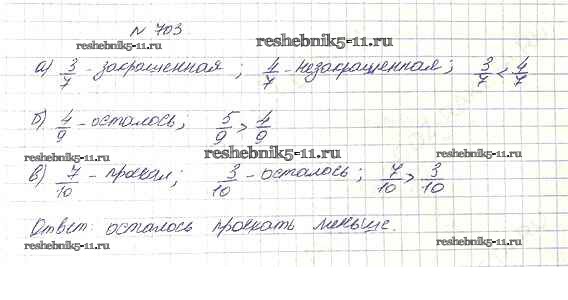 № 703
reshebnik5-11.ru reshebnik5-11.ru
а) 3/7 - закрашенная; 4/7 - незакрашенная; 3/7 < 4/7
б) 4/9 - осталось; 5/9 > 4/9
reshebnik5-11.ru reshebnik5-11.ru reshebnik5-11.ru
в) 7/10 - проехал; 3/10 - осталось; 7/10 > 3/10
Ответ: осталось проехать меньше.
reshebnik5-11.ru reshebnik5-11.ru